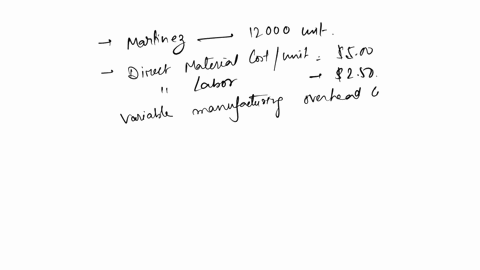 → Martinez —— 12000 unit.
→ Direct Material Cost/unit = $5.00
" Labor → $2.50.
Variable manufacturing overhead C